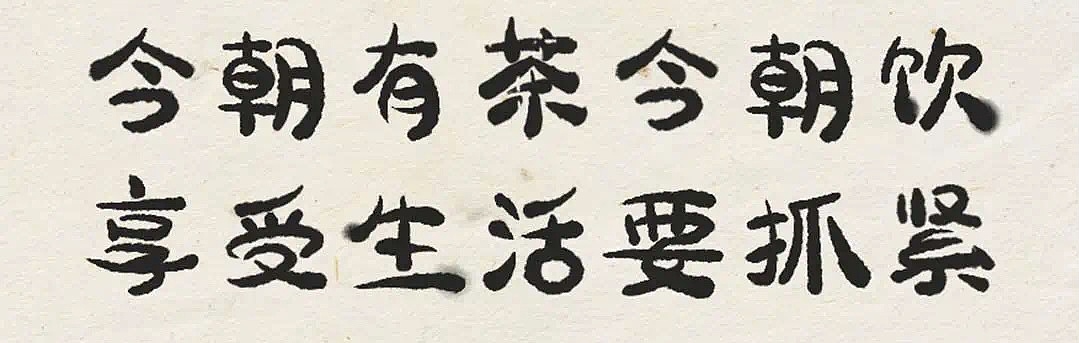 今朝有茶今朝饮
享受生活要抓紧